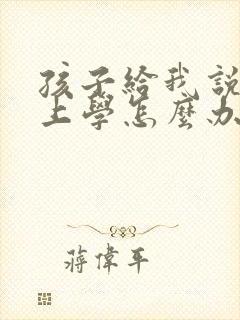 孩子給我說
上學怎麼办
蔣偉平